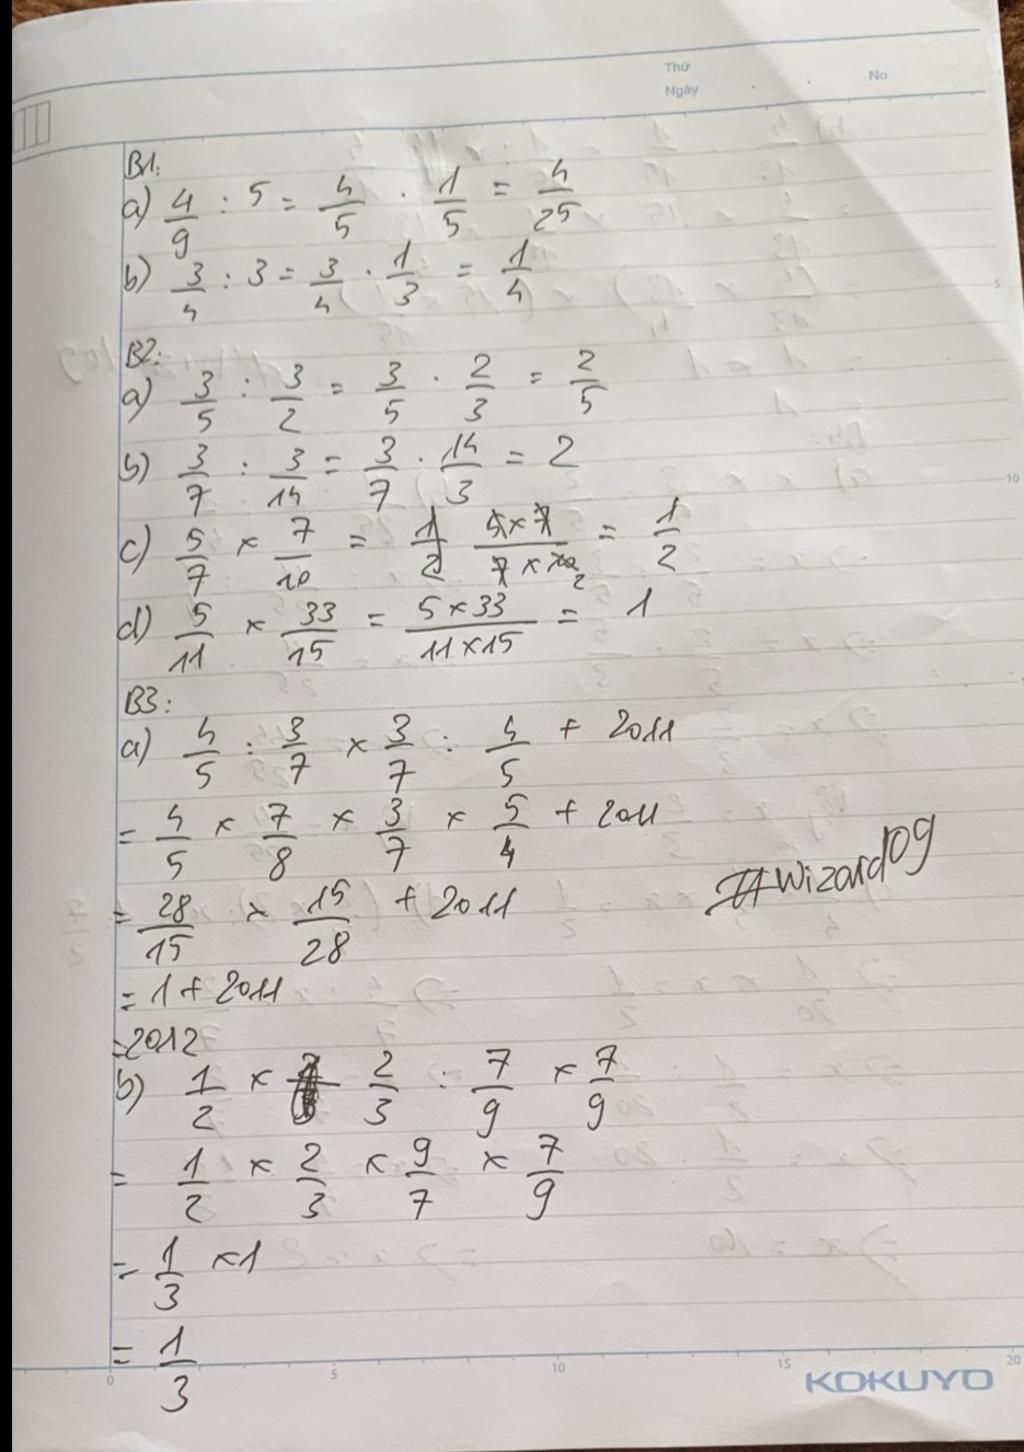 Thứ
Ngày . . No
B1:
a) 4/9 : 5 = 4/5 . 1/5 = 4/25
b) 3/4 : 3 = 3/4 . 1/3 = 1/4
5
B2:
a) 3/5 : 3/2 = 3/5 . 2/3 = 2/5
b) 3/7 : 3/14 = 3/7 . 14/3 = 2
10
c) 5/7 × 7/10 = 1/2 5×7/7×10 2 = 1/2
d) 5/11 × 33/15 = 5×33/11×15 = 1
B3:
a) 4/5 : 3/7 × 3/7 : 4/5 + 2011
= 4/5 × 7/8 × 3/7 × 5/4 + 2011
#Wizard09
= 28/15 × 15/28 + 2011
= 1 + 2011
=2012
b) 1/2 × 2/3 : 7/9 × 7/9
= 1/2 × 2/3 × 9/7 × 7/9
= 1/3 ×1
= 1/3
0 5 10 15 20
KOKUYO